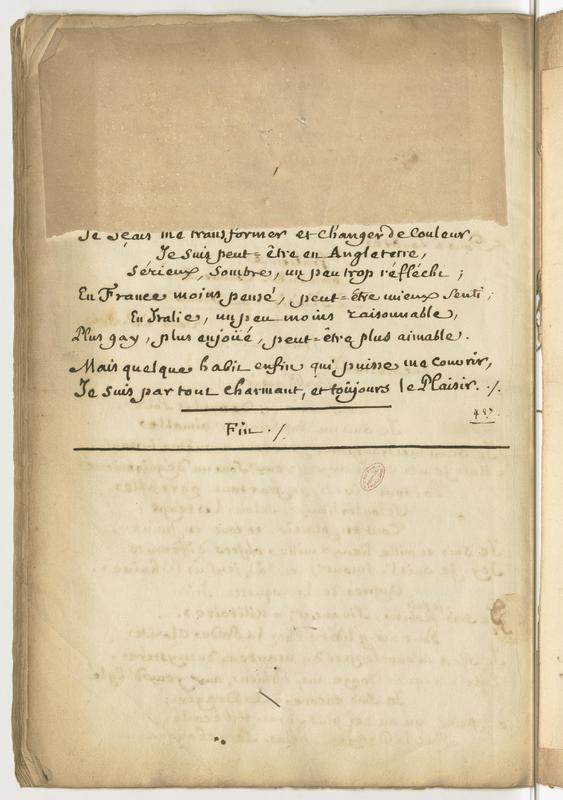 Je sçais me transformer et changer de couleur,
Je suis peut=être en Angleterre,
Sérieux, Sombre, un peu trop réfléchi ;
En France moins pensé, peut=être mieux senti ;
En Italie, un peu moins raisonnable,
Plus gay, plus enjoüé, peut=être plus aimable.
Mais quelque habit enfin qui puisse me couvrir,
Je suis par tout charmant, et toüjours le Plaisir. ./.
Fin ./.